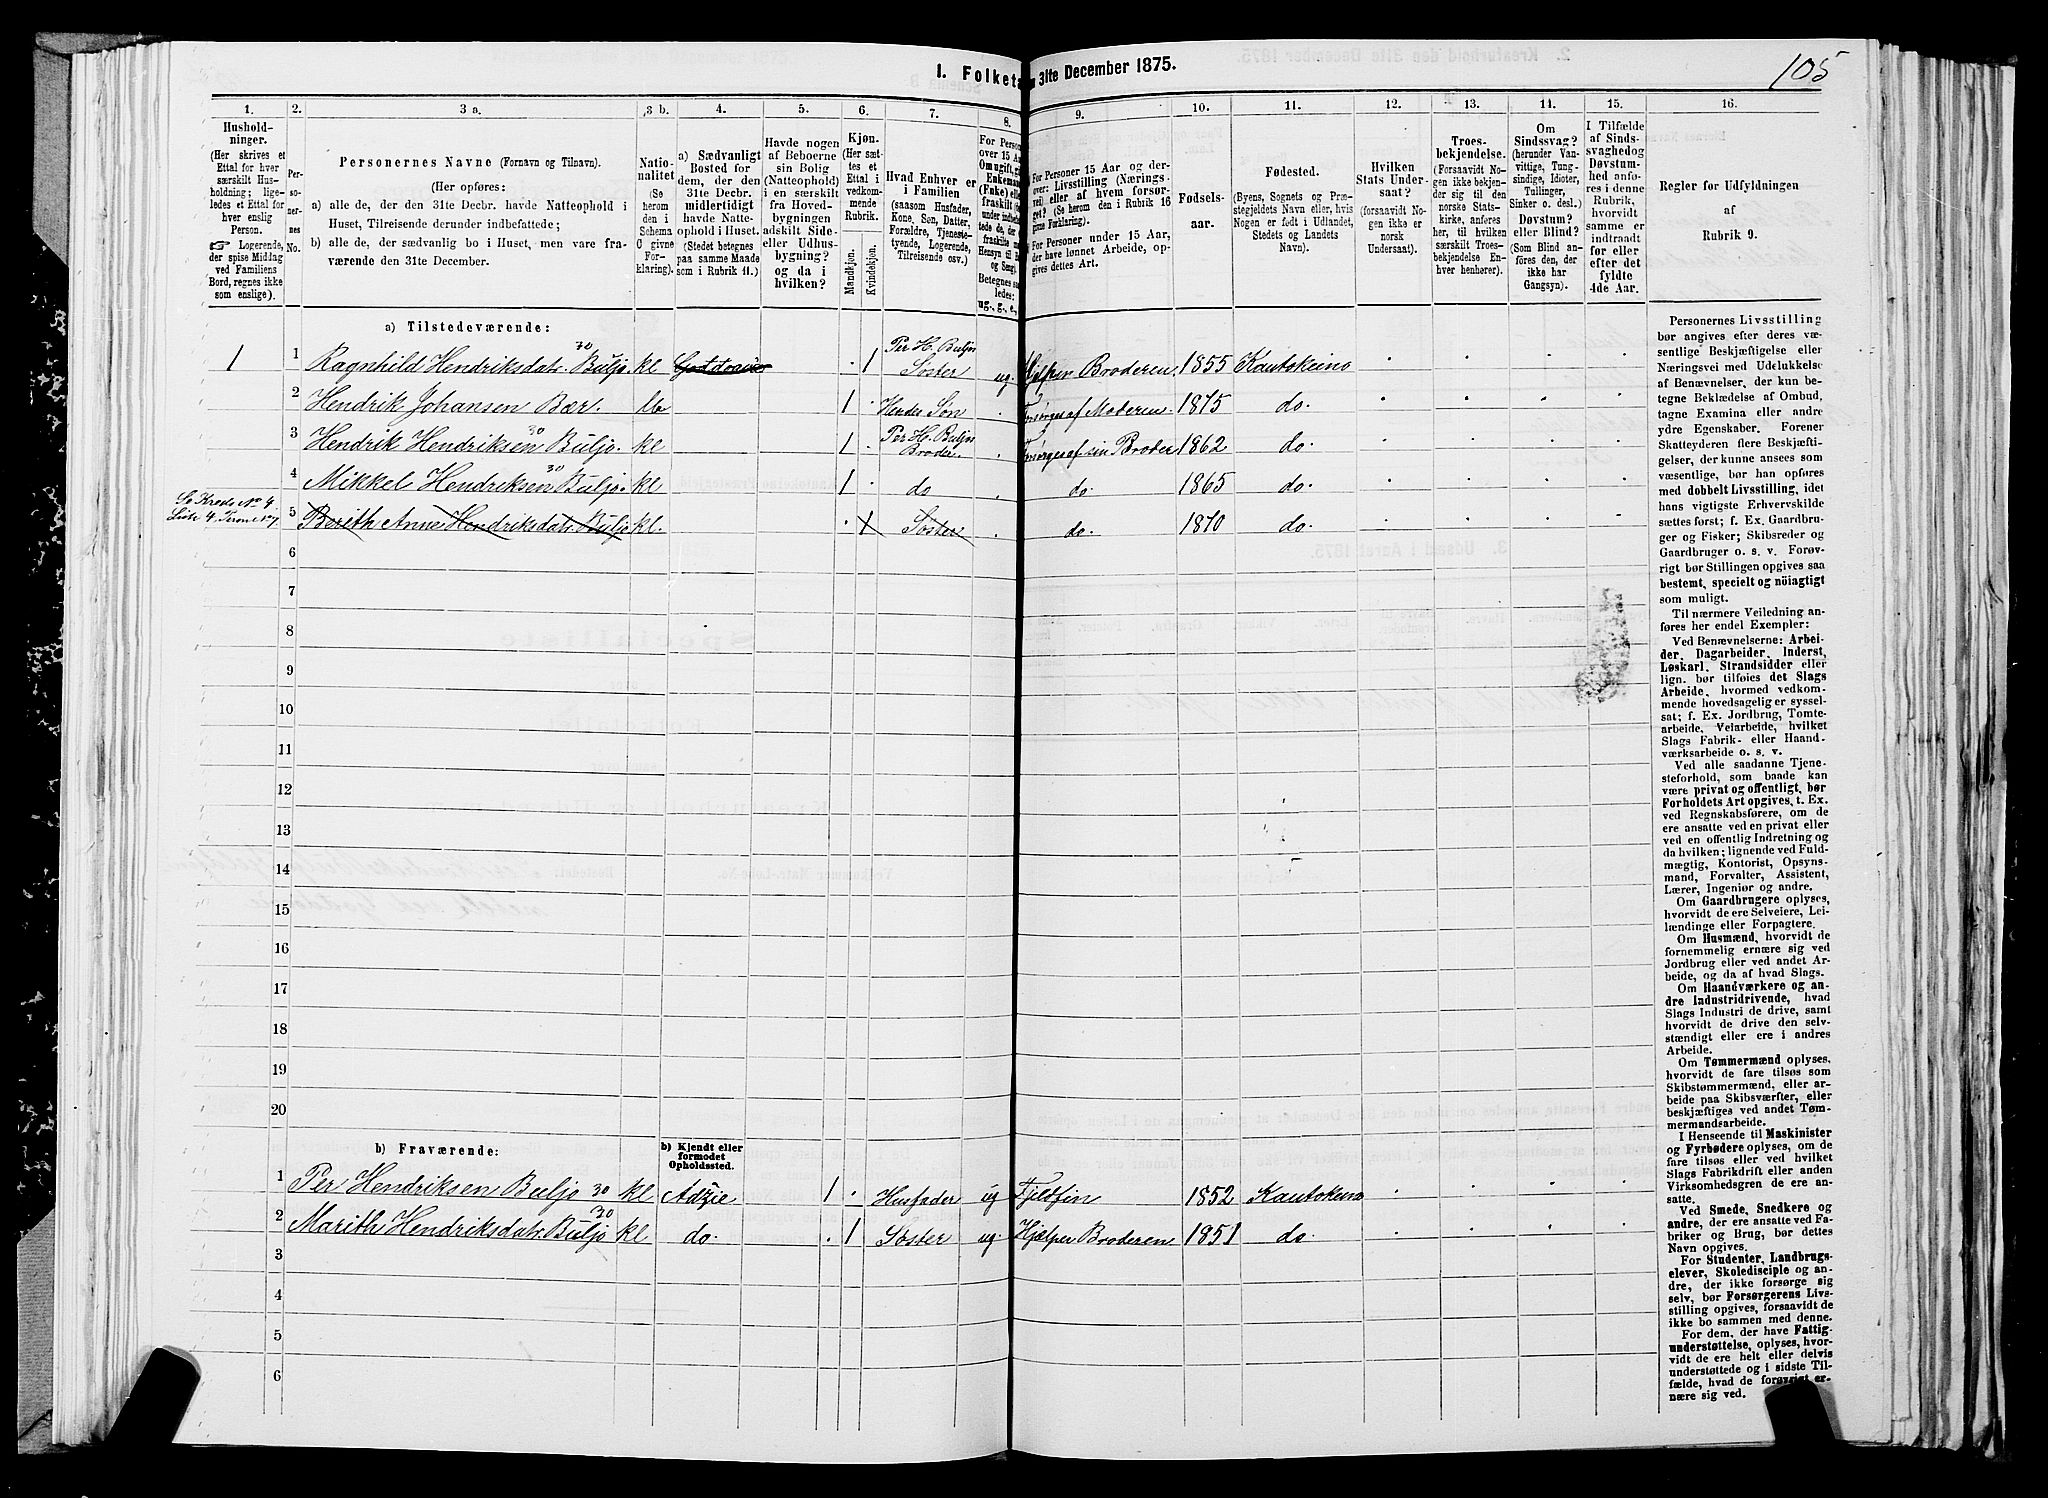 1. Folketa
31te December 1875.
105
1.
2.
3 a.
3 b.
4.
5.
6.
7.
8.
9.
10.
11.
12.
13.
14.
15.
16.
Hushold-
ninger.
(Her skrives et
Ettal for hver
særskilt Hus-
holdning; lige-
ledes et Ettal for
hver enslig
Person.
Logerende,
der spise Middag
ved Familiens
Bord, regnes ikke
som enslige).
Per-
so-
ner-
nes
No.
Personernes Navne (Fornavn og Tilnavn).
(Her opføres:
a) alle de, der den 31te Decbr. havde Natteophold i
Huset, Tilreisende derunder indbefattede;
b) alle de, der sædvanlig bo i Huset, men vare fra-
værende den 31te December.
Natio-
nalitet
(Se
herom
den i
Schema
C givne
For-
klaring).
a) Sædvanligt
Bosted for
dem, der den
31te Decbr.
midlertidigt
havde Natte-
ophold i Huset.
(Stedet betegnes
paa samme Maade
som i Rubrik 11.)
Havde nogen
af Beboerne
sin Bolig
(Natteophold)
i en særskilt
fra Hoved-
bygningen
adskilt Side-
eller Udhus-
bygning?
og da i
hvilken?
Kjøn.
(Her sæt-
tes et
Ettal i
vedkom-
mende
Rubrik.
Mandkjøn.
Kvindekjøn.
Hvad Enhver er
i Familien
(saasom Husfader,
Kone, Søn, Datter,
Forældre, Tjeneste-
tyende, Logerende,
Tilreisende osv.)
For Person
over 15 Aa
Om ugift, gi
Enkeman
(Enke) elle
fraskilt
under indbe
tede de, der
fraskilte
Hensyn til B
og Seng).
Betegnes saa
ledes:
ug., g., e.,
For Personer 15 Aar og der-
over: Livsstilling (Nærings-
vei) eller af hvem forsør-
get? (Se herom den i Rubrik 16
givne Forklaring).
For Personer under 15 Aar,
der have lønnet Arbeide, op-
gives dettes Art.
Fødsels-
aar.
Fødested.
(Byens, Sognets og Præ-
stegjeldets Navn eller, hvis
Nogen er født i Udlandet,
Stedets og Landets
Navn).
Hvilken
Stats Under-
saat?
(forsaavidt No-
gen ikke er
norsk
Undersaat).
Troes-
bekjendelse.
(Forsaavidt No-
gen ikke bekjen-
der sig til den
norske Stats-
kirke, anføres
her, til hvilken
særskilt Troes-
bekjendelse En-
hver henhører).
Om
Sindssvag?
(herunder Van-
vittige, Tung-
sindige, Idioter,
Tullinger,
Sinker o. desl.)
Døvstum?
eller Blind?
(Som Blind an-
føres den, der
ikke har
Gangsyn).
I Tilfælde
af Sinds-
svaghed og
Døvstum-
hed anfø-
res i denne
Rubrik,
hvorvidt
samme er
indtraadt
før eller
efter det
fyldte
4de Aar.
Regler for Udfyldningen
af
Rubrik 9.
a) Tilstedeværende:
1 1 Ragnhild Hendriksdatr. Buljo 30 kl Per H. Buljo Søster ug. Hjelper Broderen. 1855 Kautokeino
2 Hendrik Johansen Bær. lb 1 Hendes Søn Forsørges af Moderen. 1875 do.
3 Hendrik Hendriksen Buljo. 30 kl 1 Per H. Buljo Broder. Forsørges af sin Broder 1862 do.
4 Mikkel Hendriksen Buljo. 30 kl 1 do do. 1865 do.
Se Kreds No 4.
Liste 4.
5 Berith Anne Hendriksdatr. Buljo kl. 1 Søster do. 1870 do.
6
7
8
9
10
11
12
13
14
15
16
17
18
19
20
b) Fraværende:
b) Kjendt eller
formodet
Opholdssted.
1 Per Hendriksen Buljo 30 kl Adzie 1 Husfader ug Fjeldfin 1852 Kautokeino
2 Marith Hendriksdatr. Buljo 30 kl do. 1 Søster ug. Hjælper Broderen 1851 do.
3
4
5
6
Personernes Livsstilling
bør angives efter deres væ-
sentlige Beskjæftigelse eller
Næringsvei med Udelukkelse
af Benævnelser, der kun be-
tegne Beklædelse af Ombud,
tagne Examina eller andre
ydre Egenskaber. Forener
Skatteyderen flere Beskjæfti-
gelser, der kunne ansees som
væsentlige, bør han opføres
med dobbelt Livsstilling, idet
hans vigtigste Erhvervskilde
sættes først; f. Ex. Gaardbru-
ger og Fisker; Skibsreder og
Gaardbruger o. s. v. Forøv-
rigt bør Stillingen opgives saa
bestemt, specielt og nöiagtigt
som muligt.
Til nærmere Veiledning an-
føres her endel Exempler:
Ved Benævnelserne: Arbei-
der, Dagarbeider, Inderst,
Løskarl, Strandsidder eller
lign. bør tilføies det Slags
Arbeide, hvormed vedkom-
mende hovedsagelig er syssel-
sat; f. Ex. Jordbrug, Tomte-
arbeide, Veiarbeide, hvilket
Slags Fabrik- eller Haand-
værksarbeide o. s. v.
Ved alle saadanne Tjene-
steforhold, som baade kan
være privat og offentligt, bør
Forholdets Art opgives, t. Ex.
ved Regnskabsførere, om de
ere ansatte ved en privat eller
ved en offentlig Indretning og
da hvilken; lignende ved Fuld-
mægtig, Kontorist, Opsyns-
mand, Forvalter, Assistent,
Lærer, Ingeniør og andre.
Om Gaardbrugere oplyses,
hvorvidt de ere Selveiere, Lei-
lændinge eller Forpagtere.
Om Husmænd, hvorvidt de
fornemmelig ernære sig ved
Jordbrug eller ved andet Ar-
beide, og da af hvad Slags.
Om Haandværkere og an-
dre Industridrivende, hvad
Slags Industri de drive, samt
hvorvidt de drive den selv-
stændigt eller ere i andres
Arbeide.
Om Tømmermænd oplyses,
hvorvidt de fare tilsøs som
Skibstømmermænd, eller ar-
beide paa Skibsværfter, eller
beskjæftiges ved andet Tøm-
mermandsarbeide.
I Henseende til Maskinister
og Fyrbødere oplyses, om de
fare tilsøs eller ved hvilket
Slags Fabrikdrift eller anden
Virksomhedsgren de ere an-
satte.
Ved Smede, Snedkere og
andre, der ere ansatte ved Fa-
briker og Brug, bør dettes
Navn opgives.
For Studenter, Landbrugs-
elever, Skoledisciple og an-
dre, der ikke forsørge sig
selv, bør Forsørgerens Livs-
stilling opgives, forsaavidt de
ikke bo sammen med denne.
For dem, der have Fattig-
understøttelse, oplyses, hvor-
vidt de ere helt eller delvis
understøttede og i sidste Til-
fælde, hvad de forøvrigt er-
nære sig ved.